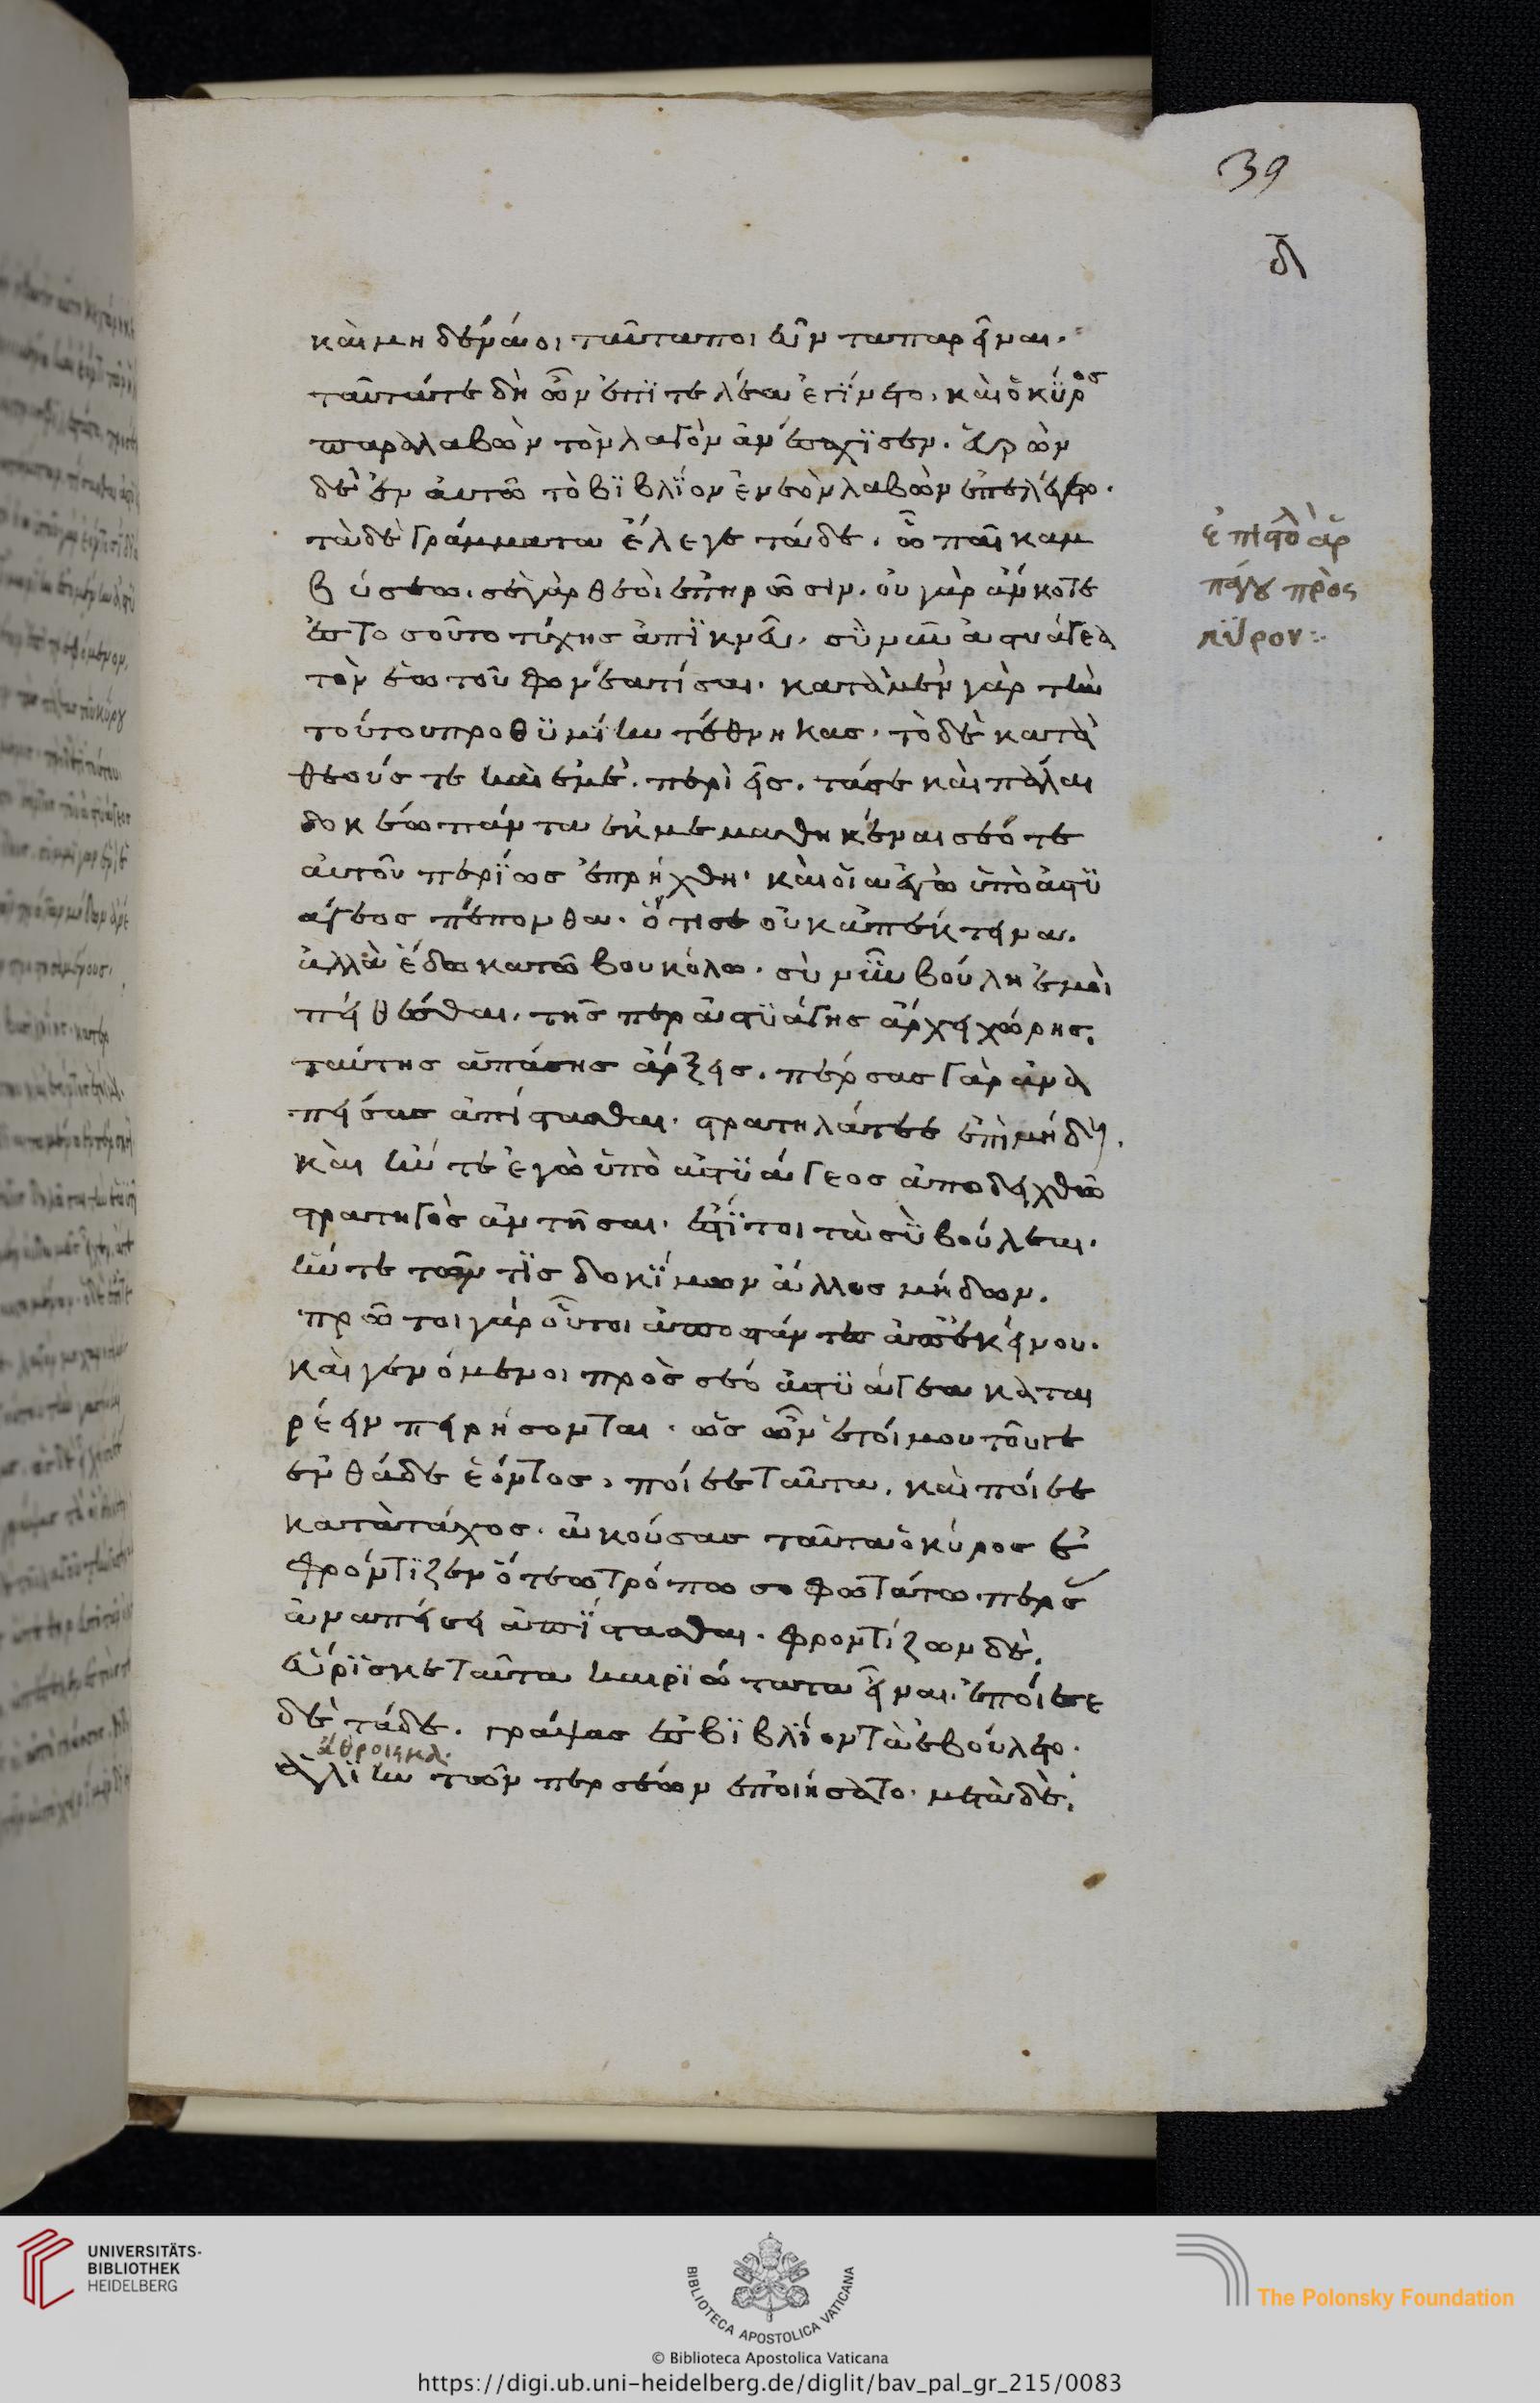 39
δ
καὶ μηδένα οἱ ταῦτα ποιεῦντα παρεῖναι.
ταῦτά τε δὴ ὦν ἐπϊτελέα ἐγίνετο. καὶ ὁ κῦρος
παραλαβὼν τὸν λαγὸν ἀνέσχϊσεν. εὑρὼν
δὲ ἐν ἀυτῶ τὸ βϊβλϊον ἐνεὸν λαβὼν ἐπελέγετο.
τὰ δὲ γράμματα ἔλεγε τάδε. ὦ παῖ καμ
βύσεω. σὲ γὰρ θεὸι ἐπηρῶσιν. ὀυ γὰρ ἄν κοτε
ἐς τοσοῦτο τύχης ἀπΐκευ. σὺ νῦν ἀστυάγεα
τὸν ἑωυτοῦ φονέα τίσαι. κατὰ μὲν γὰρ τὴν
τούτου προθϋμΐην τέθνηκας. τὸ δὲ κατὰ
θεούς τε καὶ ἐμὲ. περὶ εἶς. τάσε καὶ πάλαι
δοκέω πάντα ἐκμεμαθηκέναι σεό τε
ἀυτοῦ περΐ ὡς ἐπρήχθη. καὶ οἷα ἐγὼ ὑπὸ ἀστϋ
άγεος πέπονθα. ὅτι σε οὐκ ἀπέκτεινα.
ἀλλὰ ἔδωκα τῶ βουκόλω. σὺ νῦν βούλη ἐμοὶ
πείθεσθαι. τῆς περ ἀστϋάγης ἄρχει χώρης.
ταύτης ἁπάσης ἄρξεις. πέρσας γὰρ ἀνα
πείσας ἀπίστασθαι. στρατηλάτεε ἐπὶ μήδους.
καὶ ἤν τε ἐγὼ ὑπὸ ἀστϋάγεος ἀποδειχθέω
στρατηγὸς ἀντῆσαι. ἔστϊ τοι τὰ σὺ βούλεαι.
ἤν τε τῶν τῒς δοκΐμων ἄλλος μήδων.
πρῶτοι γὰρ οὗτοι ἀποστάντες ἀπ' ἐκείνου.
καὶ γενόμενοι πρὸς σεό ἀστϋάγεα καται
ρέειν πειρήσονται. ὡς ὦν ἑτοίμου τοῦ γε
ἐνθάδε ἐόντος. ποίεε ταῦτα. καὶ ποίεε
κατὰ τάχος. ἀκούσας ταῦτα ὁ κύρος ἐ
φρόντϊζεν ὅτεω τρόπω σοφωτάτω πέρσας
ἀναπείσει ἀπΐστασθαι. φροντίζων δὲ,
εὑρΐσκε ταῦτα καιρϊώτατα εἶναι. ἐποίεε
δὲ τάδε. γράψας ἐς βϊβλΐον τὰ ἐβούλετο.
ἄθροισμα.
ἁλίην τῶν περσέων ἐποιήσατο. μετὰ δὲ,
ἐπιστολὴ ἁρ
πάγου πρὸς
κῦρον:
UNIVERSITÄTS-
BIBLIOTHEK
HEIDELBERG
BIBLIOTECA APOSTOLICA VATICANA
© Biblioteca Apostolica Vaticana
The Polonsky Foundation
https://digi.ub.uni-heidelberg.de/diglit/bav_pal_gr_215/0083